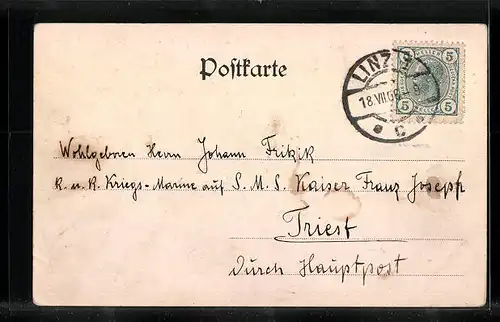 Postkarte
LINZ
18.VII.06
C
5 5
5 5
Wohlgeboren Herrn Johann Fritzik
k. u. k. Kriegs-Marine auf S. M. S. Kaiser Franz Joseph
Triest
durch Hauptpost